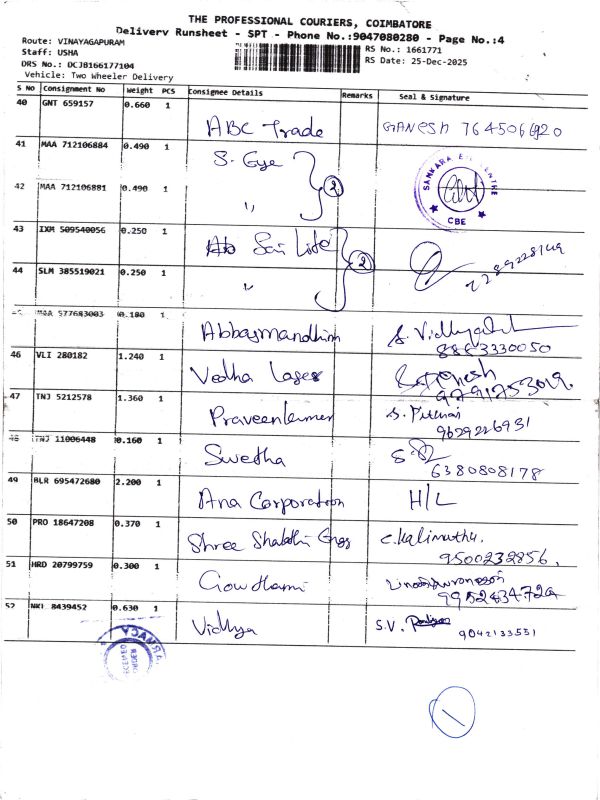 THE PROFESSIONAL COURIERS, COIMBATORE
Delivery Runsheet - SPT - Phone No.:9047080280 - Page No.:4
Route: VINAYAGAPURAM
Staff: USHA
DRS No.: DCJB166177104
Vehicle: Two Wheeler Delivery
RS No.: 1661771
RS Date: 25-Dec-2025
S No Consignment No Weight PCS Consignee Details Remarks Seal & Signature
40 GNT 659157 0.660 1 ABC Trade GANESH 7645066920
41 MAA 712106884 0.490 1 S. Eye
SANKARA EYE CENTRE
CBE
42 MAA 712106881 0.490 1 " 2
43 IXM 509540056 0.250 1 Sai Life
44 SLM 385519021 0.250 1 " 2
45 MAA 577683003 0.180 1 S.
8883330050
46 VLI 280182 1.240 1 Vedha Laser
47 TNJ 5212578 1.360 1 Praveenkumar S.
9629226931
48 TNJ 11006448 0.160 1 Swetha
6380808178
49 BLR 695472680 2.200 1 Ana Corporation H/L
50 PRO 18647208 0.370 1 Shree Shakthi Engg C. Kalimuthu.
9500232856,
51 HRD 20799759 0.300 1 Gowthami
52 NKL 8439452 0.630 1 Vidhya S.V.
9042133551